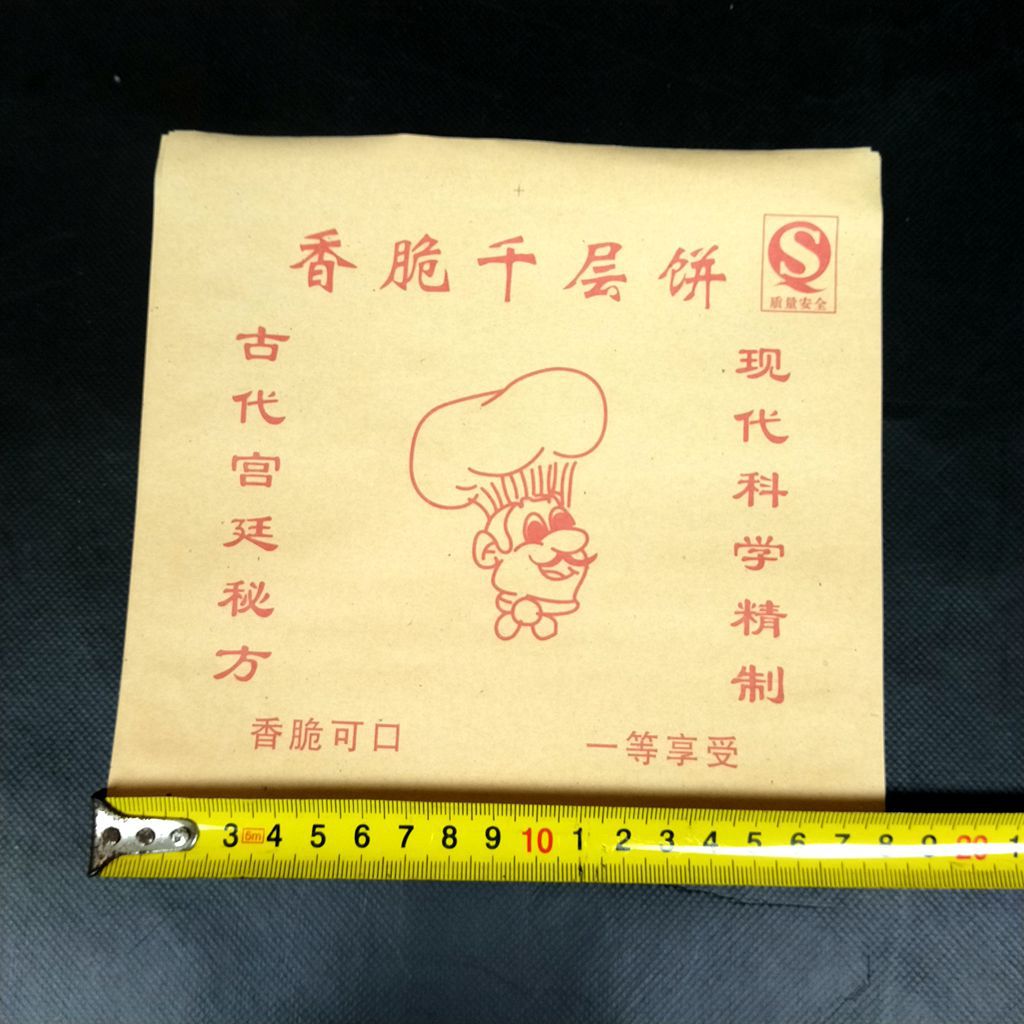 香脆千层饼
S
质量安全
古代宫廷秘方
现代科学精制
香脆可口
一等享受
3 5m 4 5 6 7 8 9 10 1 2 3 4 5 6 7 8 9 20 1